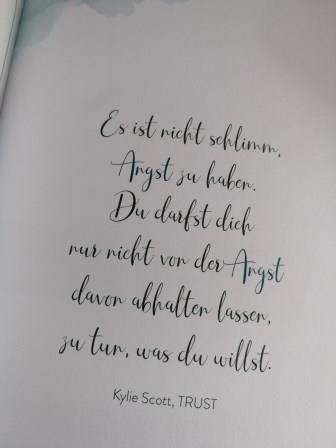 Es ist nicht schlimm,
Angst zu haben.
Du darfst dich
nur nicht von der Angst
davon abhalten lassen,
zu tun, was du willst.
Kylie Scott, TRUST